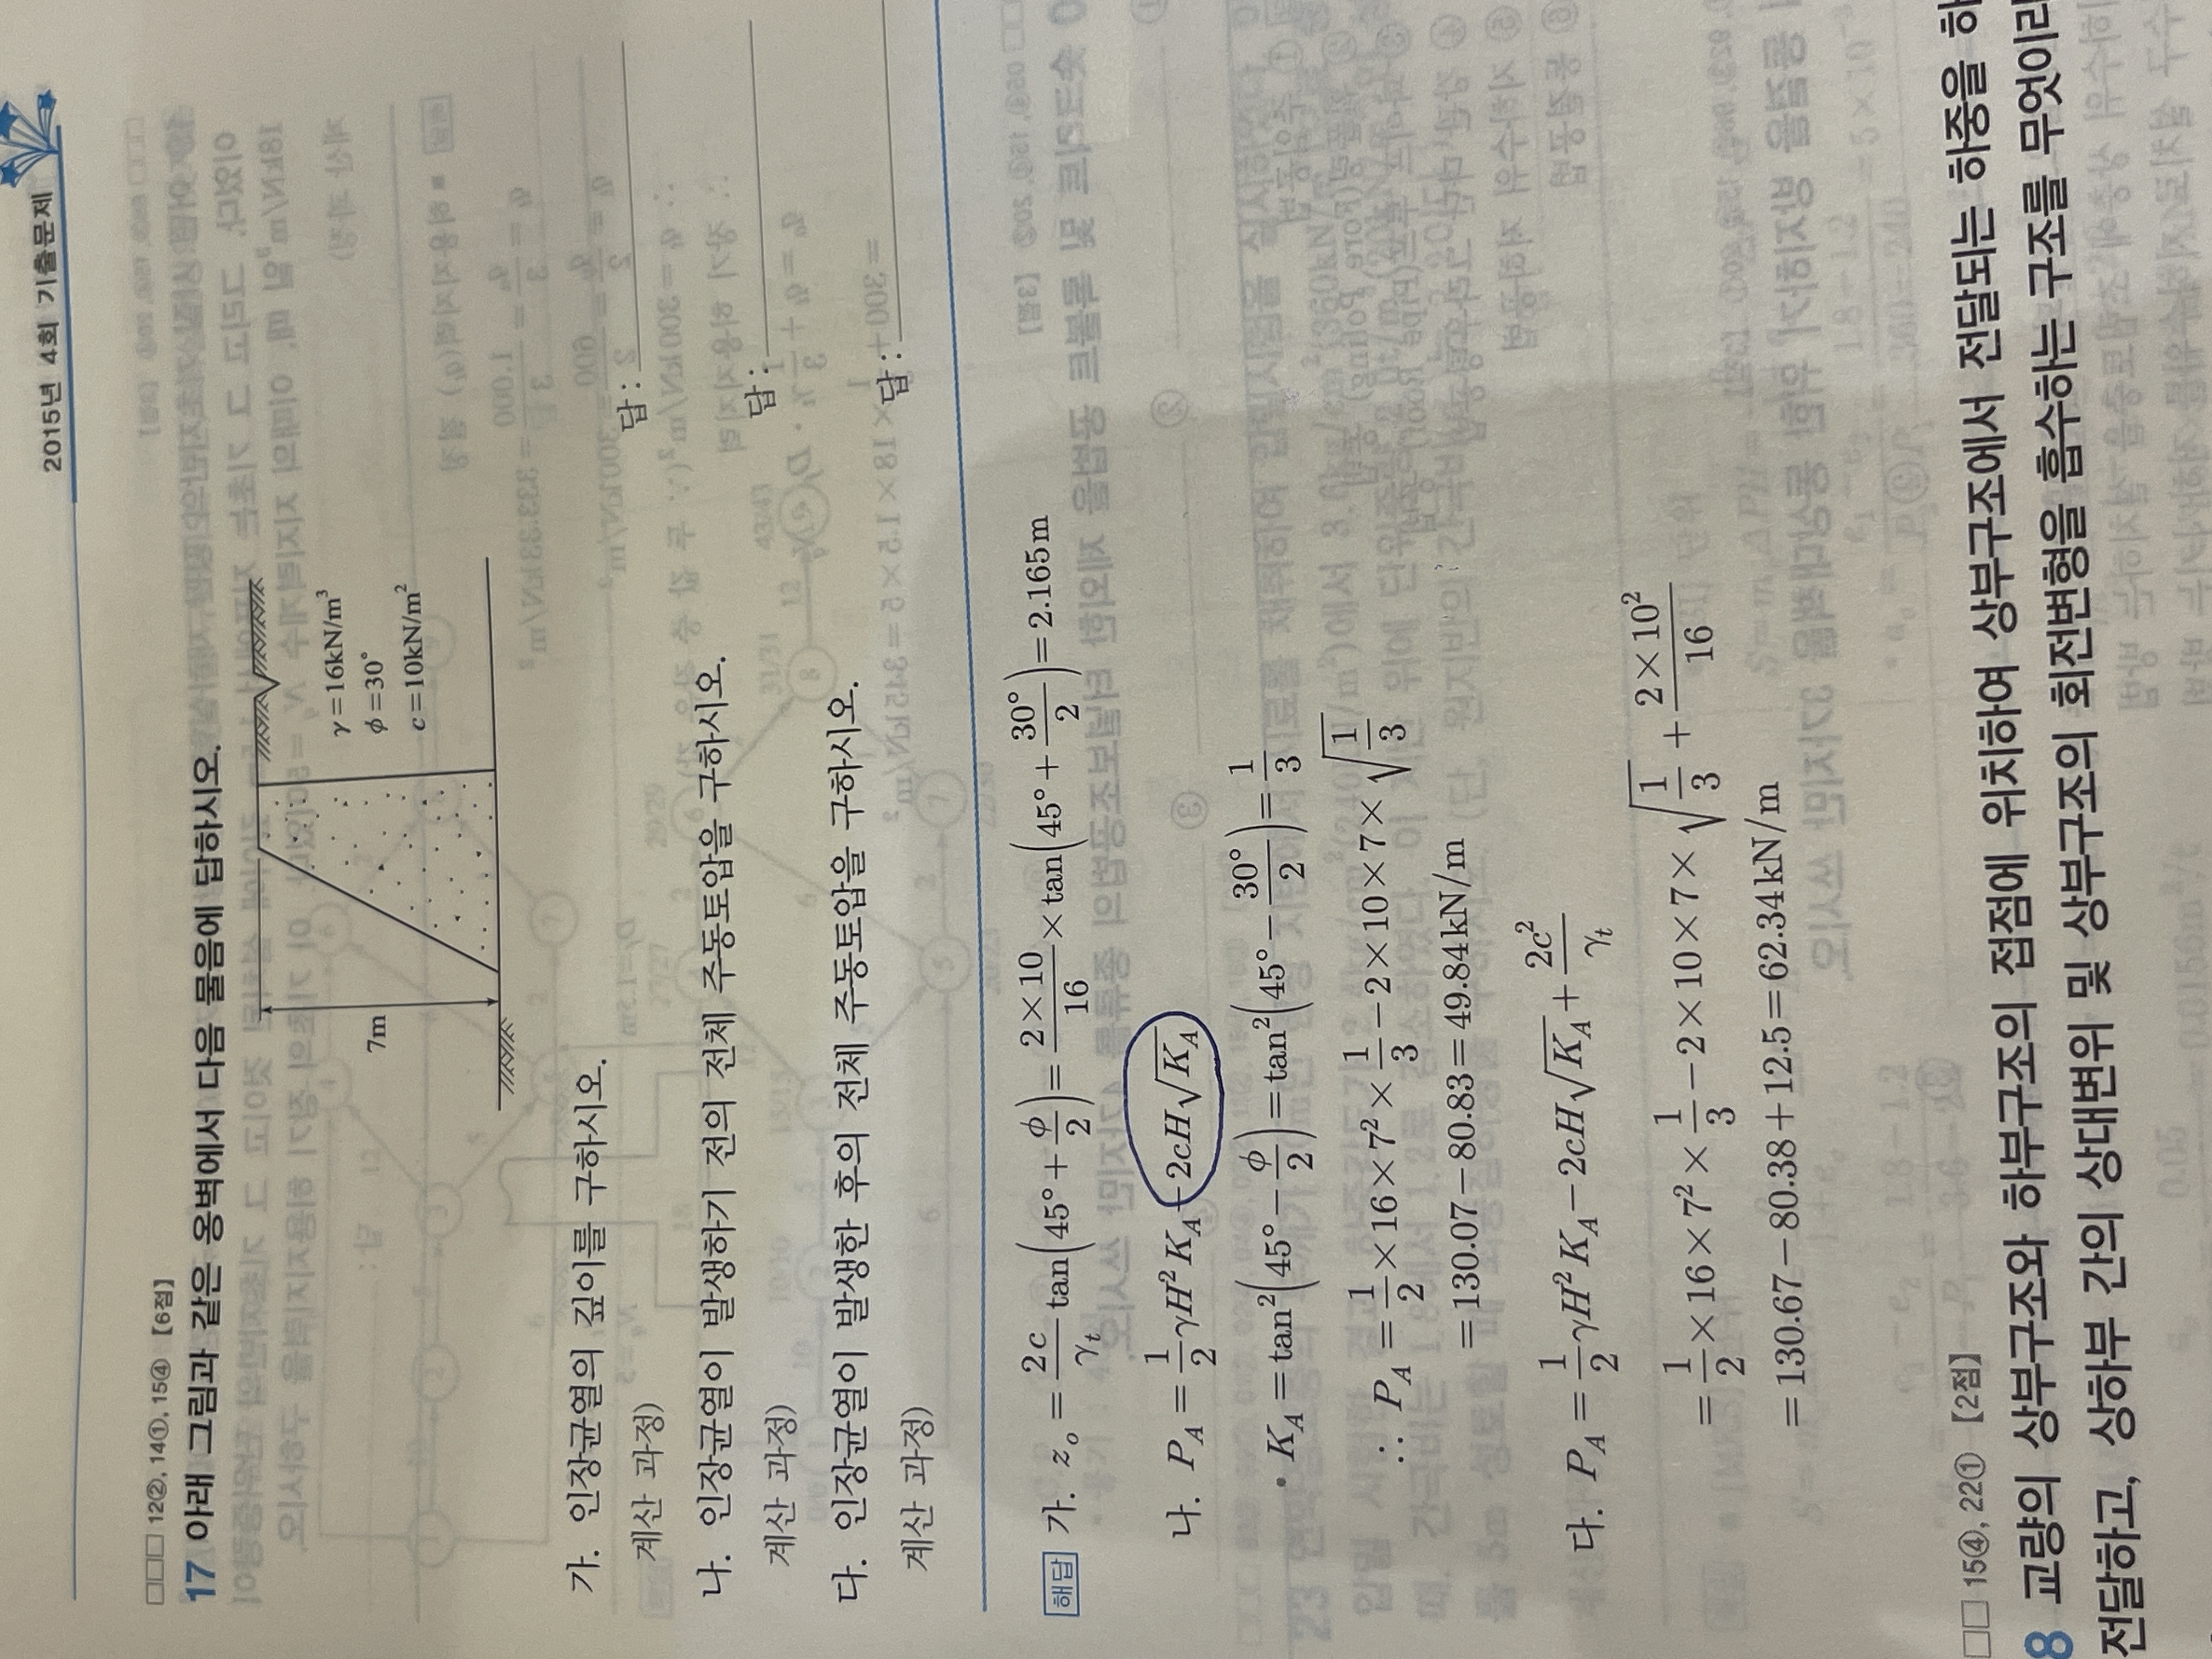 2015년 4회 기출문제
□□□ 12②, 14①, 15④ 【6점】
17 아래 그림과 같은 옹벽에서 다음 물음에 답하시오.
7m
γ=16kN/m³
ϕ=30°
c=10kN/m²
가. 인장균열의 깊이를 구하시오.
계산 과정)
답 :
나. 인장균열이 발생하기 전의 전체 주동토압을 구하시오.
계산 과정)
답 :
다. 인장균열이 발생한 후의 전체 주동토압을 구하시오.
계산 과정)
답 :
해답 가. z_o = 2c/γ_t tan(45°+ϕ/2) = 2×10/16 × tan(45°+30°/2) = 2.165m
나. P_A = 1/2 γH²K_A − 2cH√K_A
• K_A = tan²(45°−ϕ/2) = tan²(45°−30°/2) = 1/3
∴ P_A = 1/2 ×16×7²× 1/3 − 2×10×7×√(1/3)
= 130.07−80.83 = 49.84kN/m
다. P_A = 1/2 γH²K_A − 2cH√K_A + 2c²/γ_t
= 1/2 ×16×7²× 1/3 − 2×10×7×√(1/3) + 2×10²/16
= 130.67−80.38+12.5 = 62.34kN/m
□□ 15④, 22① 【2점】
8 교량의 상부구조와 하부구조의 접점에 위치하여 상부구조에서 전달되는 하중을 하
전달하고, 상하부 간의 상대변위 및 상부구조의 회전변형을 흡수하는 구조를 무엇이라